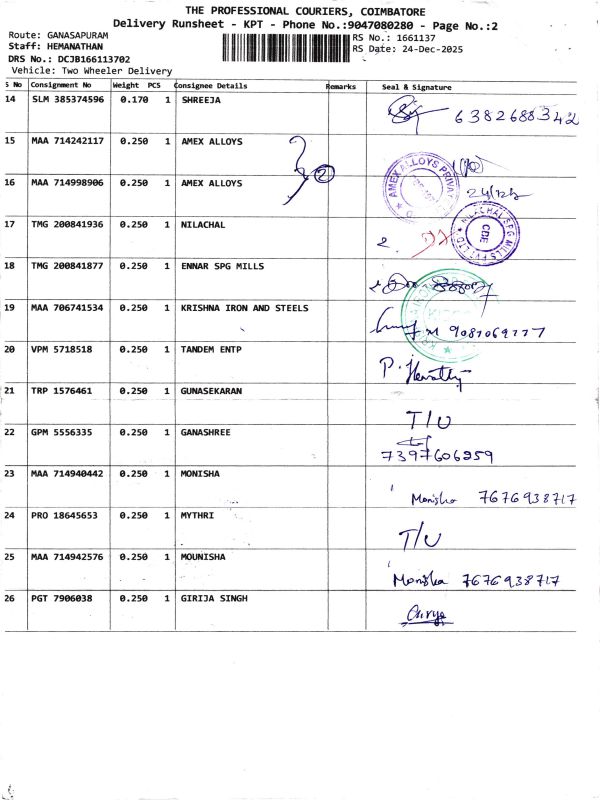 THE PROFESSIONAL COURIERS, COIMBATORE
Delivery Runsheet - KPT - Phone No.:9047080280 - Page No.:2
Route: GANASAPURAM
RS No.: 1661137
Staff: HEMANATHAN
RS Date: 24-Dec-2025
DRS No.: DCJB166113702
Vehicle: Two Wheeler Delivery
S No Consignment No Weight PCS Consignee Details Remarks Seal & Signature
14 SLM 385374596 0.170 1 SHREEJA 6382688342
15 MAA 714242117 0.250 1 AMEX ALLOYS
2
AMEX ALLOYS PRIVA
16 MAA 714998906 0.250 1 AMEX ALLOYS
17 TMG 200841936 0.250 1 NILACHAL 2.
NILACHAL SPG MILLS PVT LTD
CBE
18 TMG 200841877 0.250 1 ENNAR SPG MILLS
19 MAA 706741534 0.250 1 KRISHNA IRON AND STEELS
20 VPM 5718518 0.250 1 TANDEM ENTP P.
21 TRP 1576461 0.250 1 GUNASEKARAN T/U
22 GPM 5556335 0.250 1 GANASHREE 7397606259
23 MAA 714940442 0.250 1 MONISHA Monisha 7676938717
24 PRO 18645653 0.250 1 MYTHRI T/U
25 MAA 714942576 0.250 1 MOUNISHA Monisha 7676938717
26 PGT 7906038 0.250 1 GIRIJA SINGH